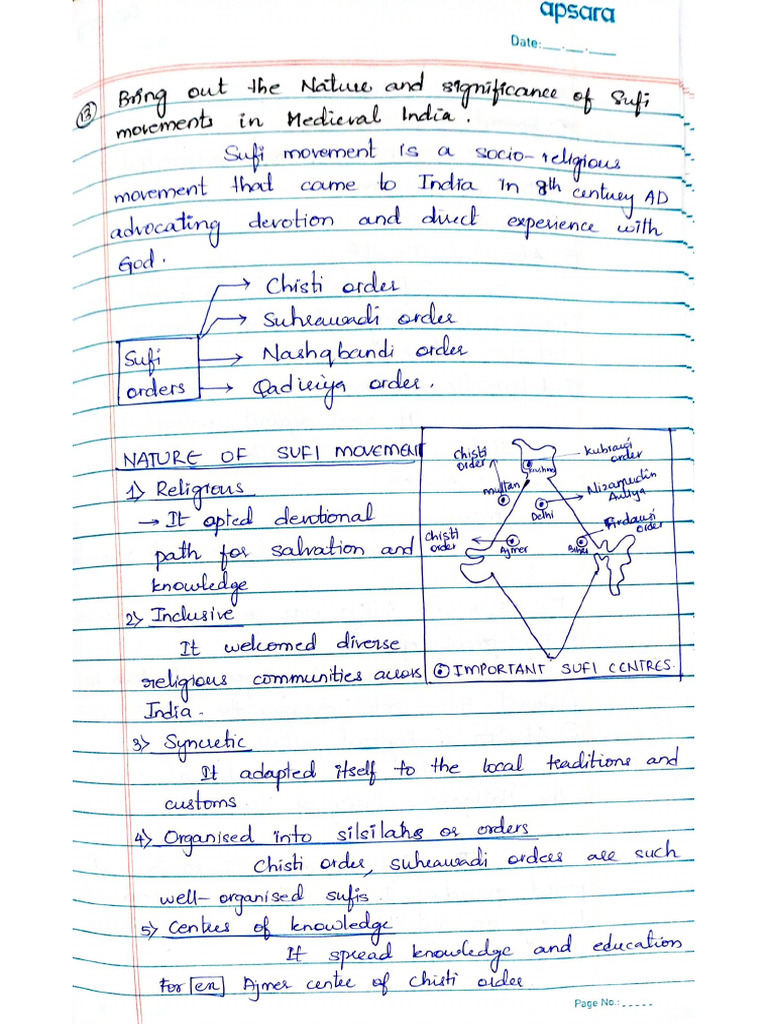 apsara
Date:__.__.____
13 Bring out the Nature and significance of Sufi
movements in Medieval India.
Sufi movement is a socio-religious
movement that came to India in 8th century AD
advocating devotion and direct experience with
God.
Chisti order
Suhrawadi order
Sufi
orders
Nashqbandi order
Qadiriya order.
NATURE OF SUFI MOVEMENT
1) Religious
→ It opted devotional
path for salvation and
knowledge
2) Inclusive
It welcomed diverse
religious communities across
India.
chisti
order
Kubrawi
order
multan
Nizamudin
Auliya
Delhi
Firdausi
order
chisti
order
Ajmer
Bihar
IMPORTANT SUFI CENTRES.
3) Syncretic
It adapted itself to the local traditions and
customs
4) Organised into silsilahs or orders
Chisti order, suhrawadi orders are such
well-organised sufis.
5) Centres of knowledge
It spread knowledge and education
For en Ajmer centre of chisti order.
Page No.: -----